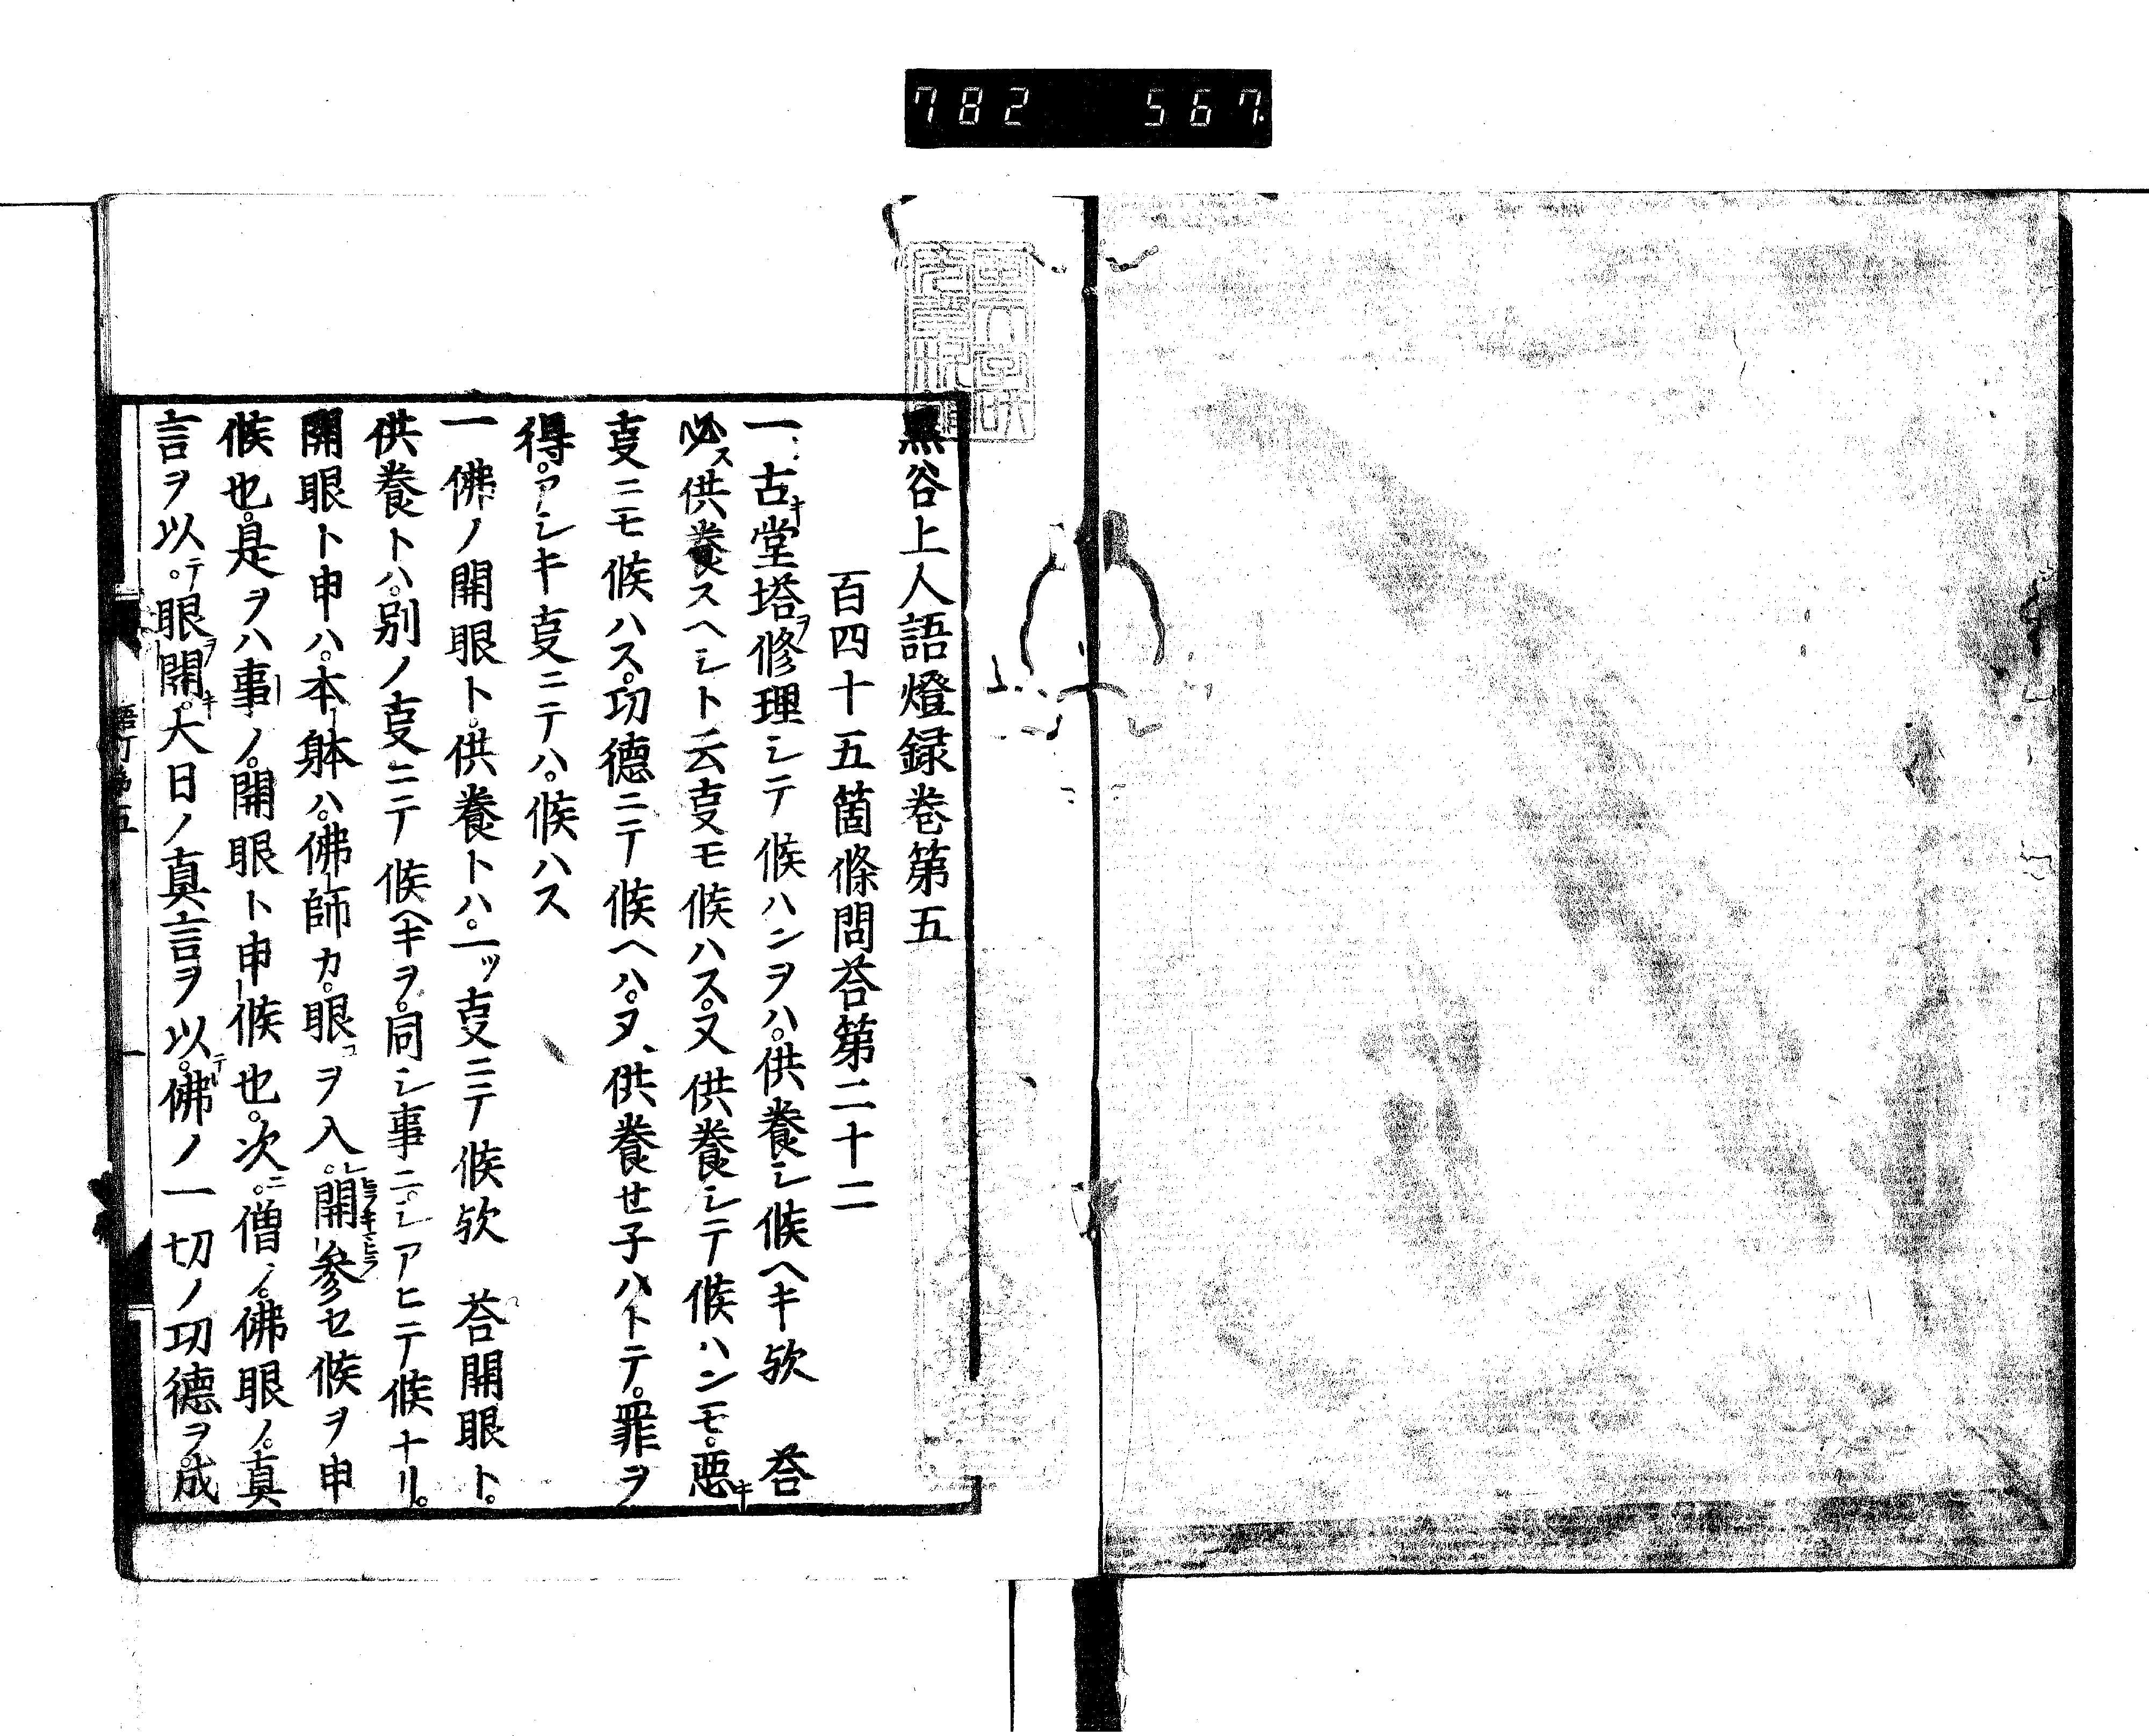 782 567
黒谷上人語燈録巻第五
百四十五箇條問荅第二十二
一古キ堂塔ヲ修理シテ候ハンヲハ。供養シ候ヘキ欤 荅
必ス供養スヘシト云㕝モ候ハス。又供養シテ候ハンモ。悪キ
㕝ニモ候ハス。功徳ニテ候ヘハ。タ丶供養せ子ハトテ。罪ヲ
得。アシキ㕝ニテハ。候ハス
一佛ノ開眼ト。供養トハ。一ツ㕝ニテ候欤 荅開眼ト。
供養トハ。別ノ㕝ニテ候ヘキヲ。同シ事ニ。シアヒテ候ナリ。
開眼ト申ハ。本躰ハ。佛師カ。眼ヲ入。開参セ候ヲ申
候也。是ヲハ事ノ。開眼ト申候也。次ニ。僧ノ。佛眼ノ。真
言ヲ以テ。眼ヲ開キ。大日ノ真言ヲ以テ。佛ノ一切ノ功徳ヲ。成